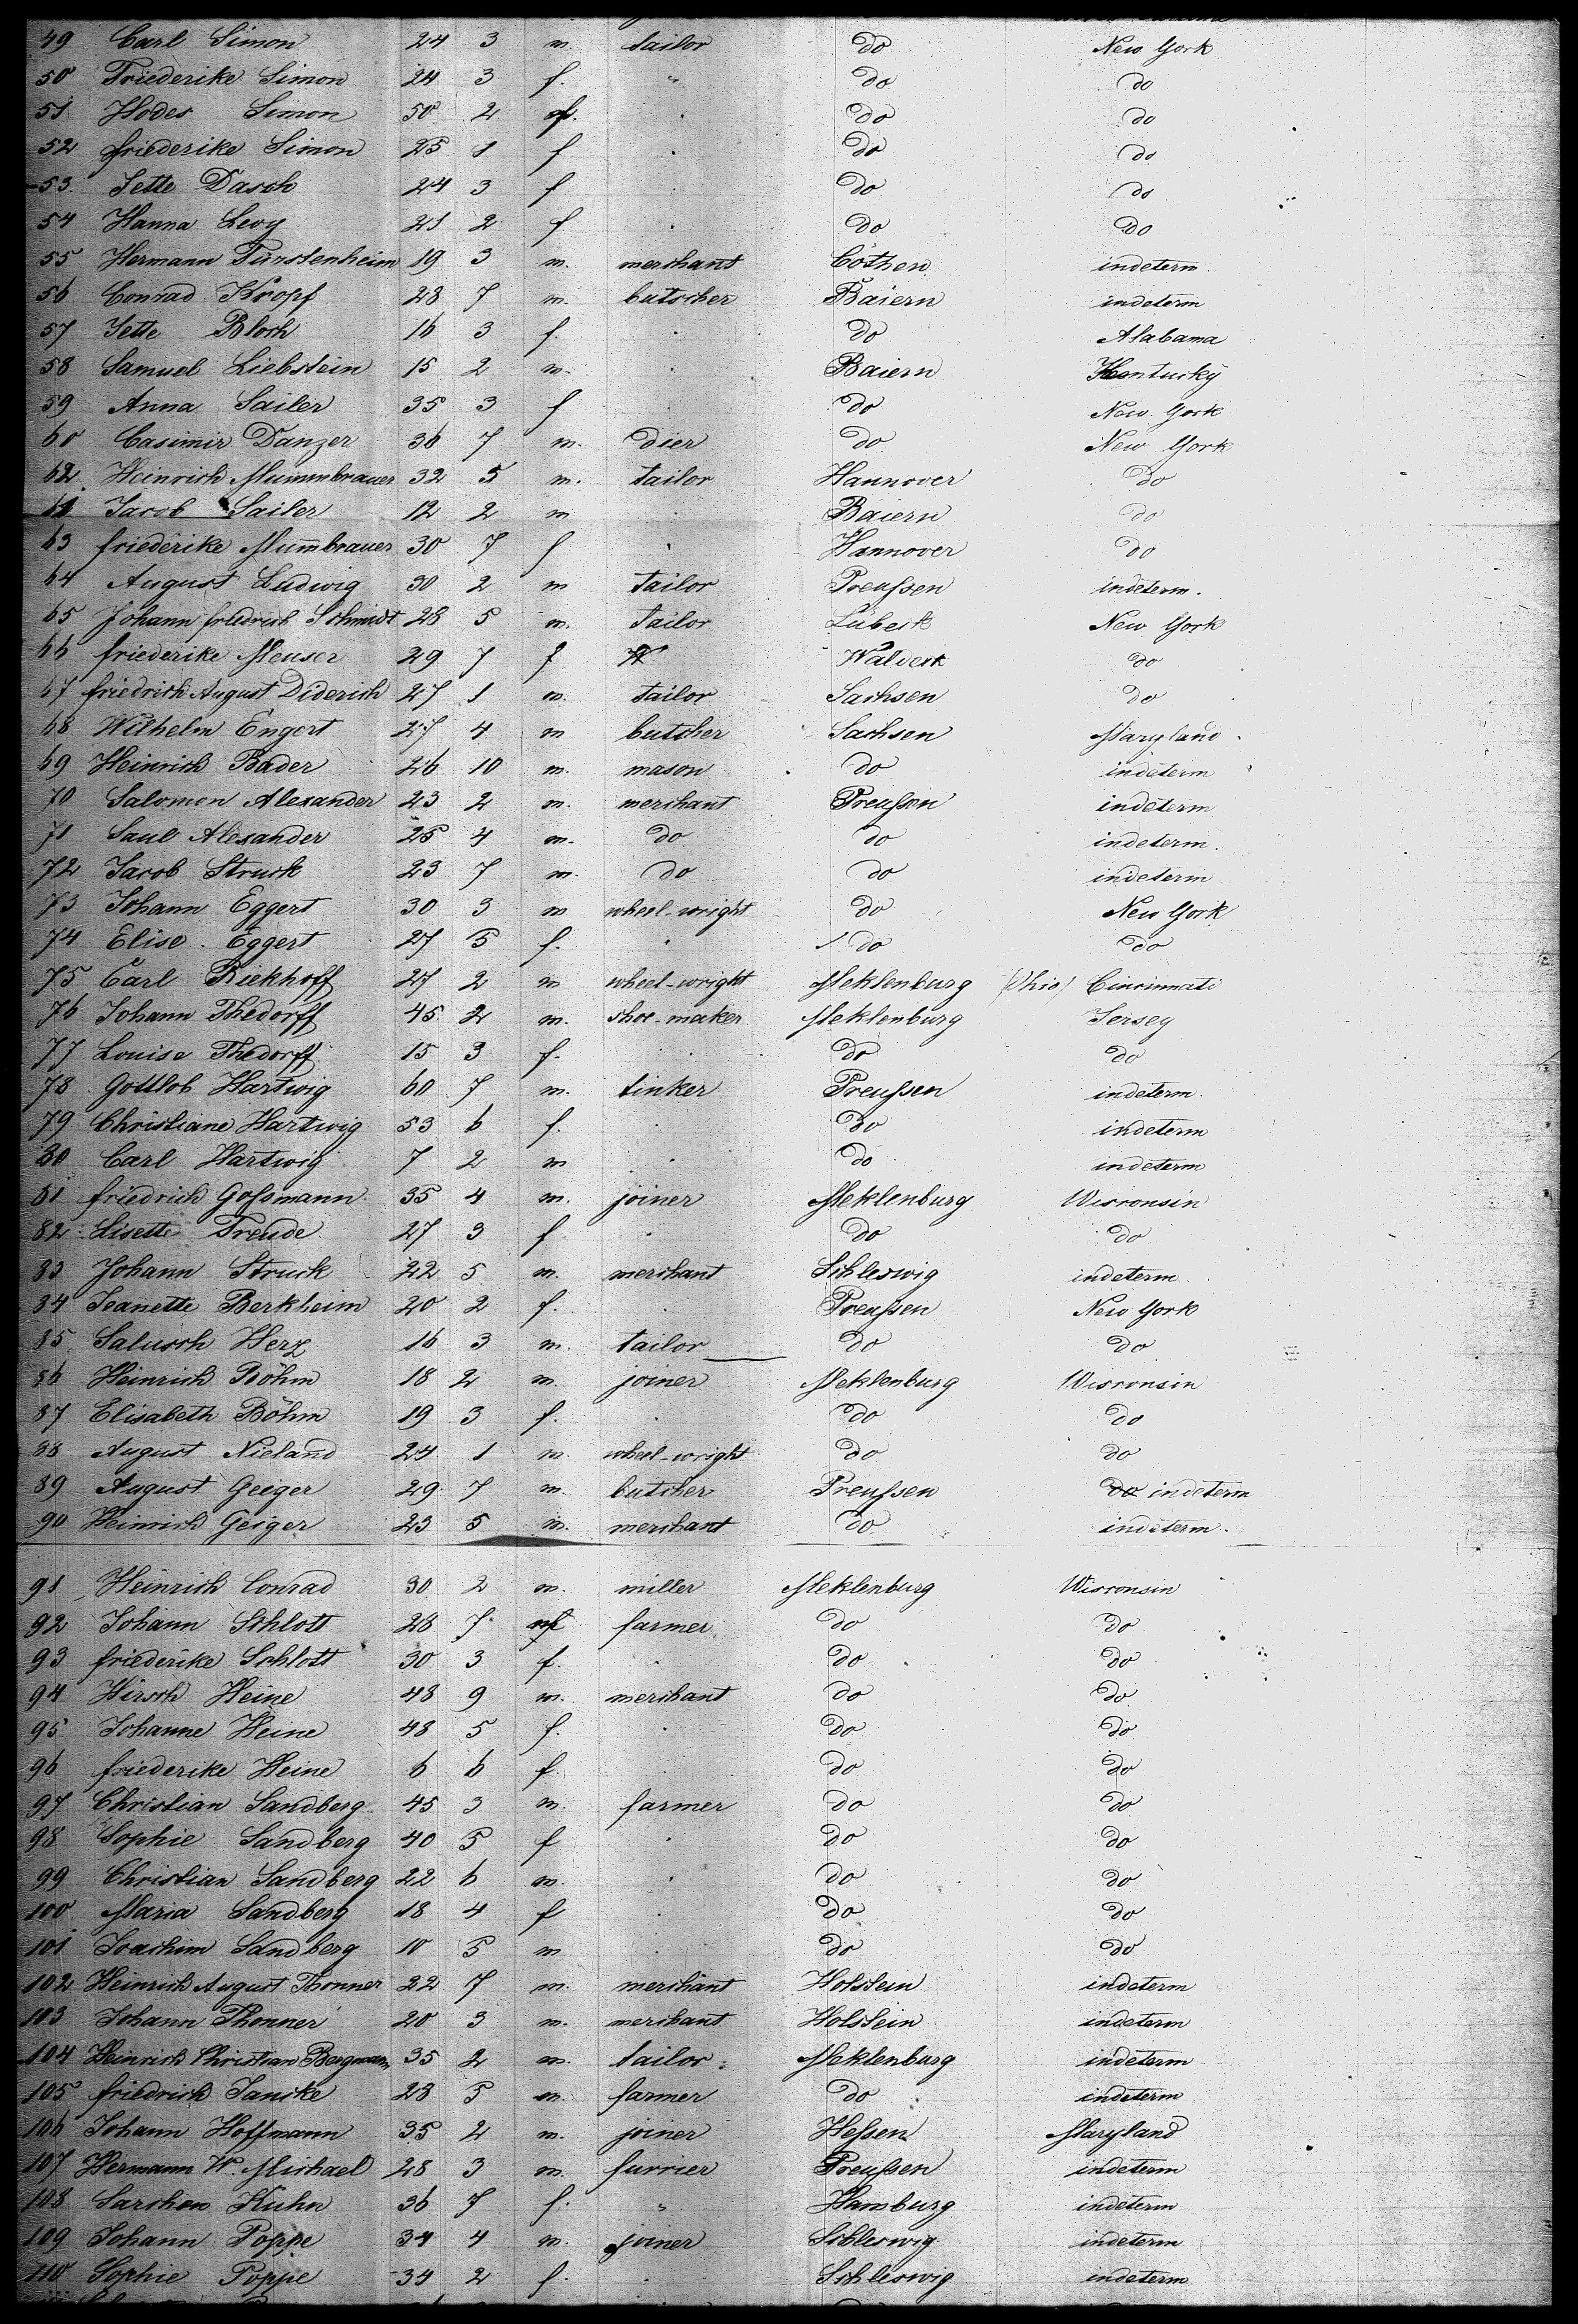 49 Carl Simon 24 3 m. tailor do New York
50 Friederike Simon 24 3 f. " do do
51 Hodes Simon 50 2 f. do do
52 friederike Simon 25 1 f do do
53. Jette Dasch 24 3 f do do
54 Hanna Levy 21 2 f do do
55 Hermann Fürstenheim 19 3 m. merchant Cöthen indeterm.
56 Conrad Kropf 28 7 m. butscher Baiern indeterm
57 Jette Bloch 16 3 f. do Alabama
58 Samuel Liebstein 15 2 m. Baiern Kentucky
59 Anna Sailer 35 3 f do New York
60 Casimir Danzer 36 7 m. dier do New York
62. Heinrich Mummbrauer 32 5 m. tailor Hannover do
61 Jacob Sailer 12 2 m Baiern do
63 friederike Mum̄brauer 30 7 f Hannover do
64 August Ludwig 30 2 m tailor Preußen indeterm.
65 Johann friedrich Schmidt 28 5 m. tailor Lübeck New York
66 friederike Meuser 29 7 f Waldeck do
67 friedrich August Diderich 27 1 m. tailor Sachsen do
68 Wilhelm Engert 27 4 m butcher Sachsen Maryland
69 Heinrich Bader 26 10 m. mason do indeterm
70 Salomon Alexander 23 2 m. merchant Preußen indeterm
71 Saul Alexander 25 4 m. do do indeterm.
72 Jacob Struck 23 7 m. do do indeterm
73 Johann Eggert 30 3 m wheel-wright do New York
74 Elise Eggert 27 5 f. do do
75 Carl Riekhoff 27 2 m wheel-wright Meklenburg (Ohio) Cincinnati
76 Johann Thedorff 45 2 m. shoe-maker Meklenburg Jersey
77 Louise Thedorff 15 3 f. do do
78 Gottlob Hartwig 60 7 m. tinker Preußen indeterm.
79 Christiane Hartwig 53 6 f. do indeterm
80 Carl Hartwig 7 2 m do indeterm
81 friedrich Goßmann 35 4 m. joiner Meklenburg Wisconsin
82 Lisette Freude 27 3 f do do
83 Johann Struck 22 5 m. merchant Schleswig indeterm
84 Jeanette Berkheim 20 2 f. Preußen New York
85 Salusch Herz 16 3 m. tailor do do
86 Heinrich Böhm 18 2 m. joiner Meklenburg Wisconsin
87 Elisabeth Böhm 19 3 f. do do
88 August Nieland 24 1 m. wheel-wright do do
89 August Geiger 29 7 m. butcher Preußen do indeterm
90 Heinrich Geiger 23 5 m. merchant do indeterm.
91 Heinrich Conrad 30 2 m. miller Meklenburg Wisconsin
92 Johann Schlott 28 7 m farmer do do
93 friederike Schlott 30 3 f. do do
94 Hirsch Heine 48 9 m. merchant do do
95 Johanne Heine 48 5 f. do do
96 friederike Heine 6 6 f. do do
97 Christian Sandberg 45 3 m. farmer do do
98 Sophie Sandberg 40 5 f do do
99 Christian Sandberg 22 6 m. do do
100 Maria Sandberg 18 4 f do do
101 Joachim Sandberg 10 5 m do do
102 Heinrich August Thonner 22 7 m. merchant Holstein indeterm
103 Johann Thonner 20 3 m. merchant Holstein indeterm
104 Heinrich Christian Bergmann 35 2 m. tailor Meklenburg indeterm
105 friedrich Jancke 28 5 m. farmer do indeterm
106 Johann Hoffmann 35 2 m. joiner Heßen Maryland
107 Hermann W. Michael 28 3 m. furrier Preußen indeterm
108 Sarchen Kuhn 36 7 f. " Hamburg indeterm
109 Johann Poppe 34 4 m. joiner Schleswig indeterm
110 Sophie Poppe 34 2 f. Schleswig indeterm